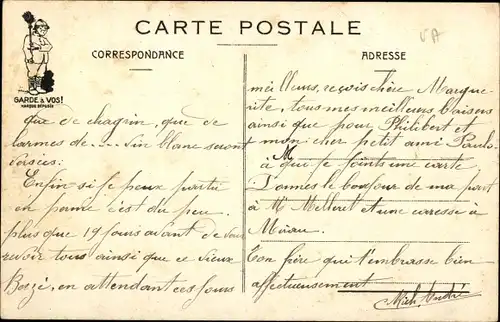 CARTE POSTALE
VA
CORRESPONDANCE
ADRESSE
GARDE à VOS!
MARQUE DÉPOSÉE
que de chagrin, que de
larmes de.... vin blanc seront
versées:
Enfin si je peux partir
en perme c'est du peu
plus que 19 jours avant de vous
revoir tous ainsi que ce vieux
en attendant ces jours
meilleurs, reçois chère Margue-
rite, tous mes meilleurs baisers
ainsi que pour Philibert et
mon cher petit ami Paulo.
M
à qui je joints une carte
Donnes le bonjour de ma part
à Mr et une caresse à
Ton frère qui t'embrasse bien
affectueusement
André